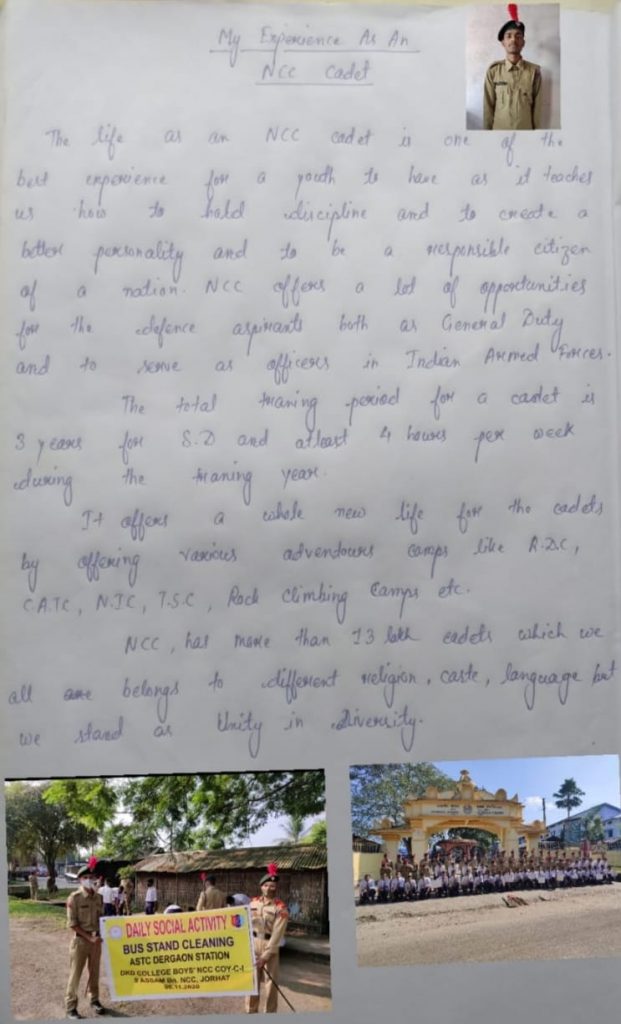 My Experience As An
NCC Cadet
The life as an NCC cadet is one of the
best experience for a youth to have as it teaches
us how to hold discipline and to create a
better personality and to be a responsible citizen
of a nation. NCC offers a lot of opportunities
for the defence aspirants both as General Duty
and to serve as officers in Indian Armed Forces.
The total traning period for a cadet is
3 years for S.D and atleast 4 hours per week
during the traning year.
It offers a whole new life for the cadets
by offering various adventours camps like R.D.C,
C.A.T.C, N.I.C, T.S.C, Rock Climbing Camps etc.
NCC, has more than 13 lakh cadets which we
all are belongs to different religion, caste, language but
we stand as Unity in Diversity.
DAILY SOCIAL ACTIVITY
BUS STAND CLEANING
ASTC DERGAON STATION
DKD COLLEGE BOYS' NCC COY-C-I
ASSAM Bn. NCC, JORHAT
11.2020